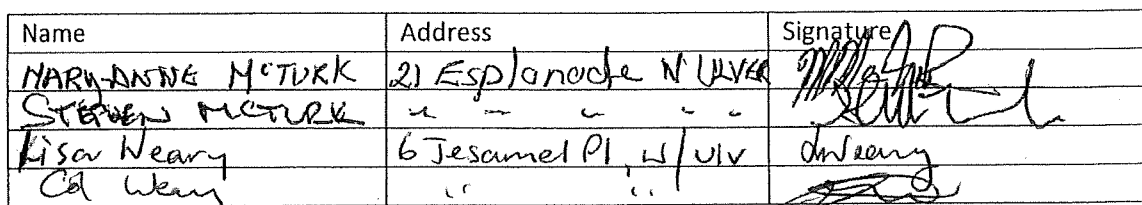 Name Address Signature
MARY-ANNE McTURK 21 Esplanade W'ULVER
STEPHEN McTURK " " " " "
Lisa Weary 6 Jesamel Pl, W/Ulv LWeary
Col Weary " "